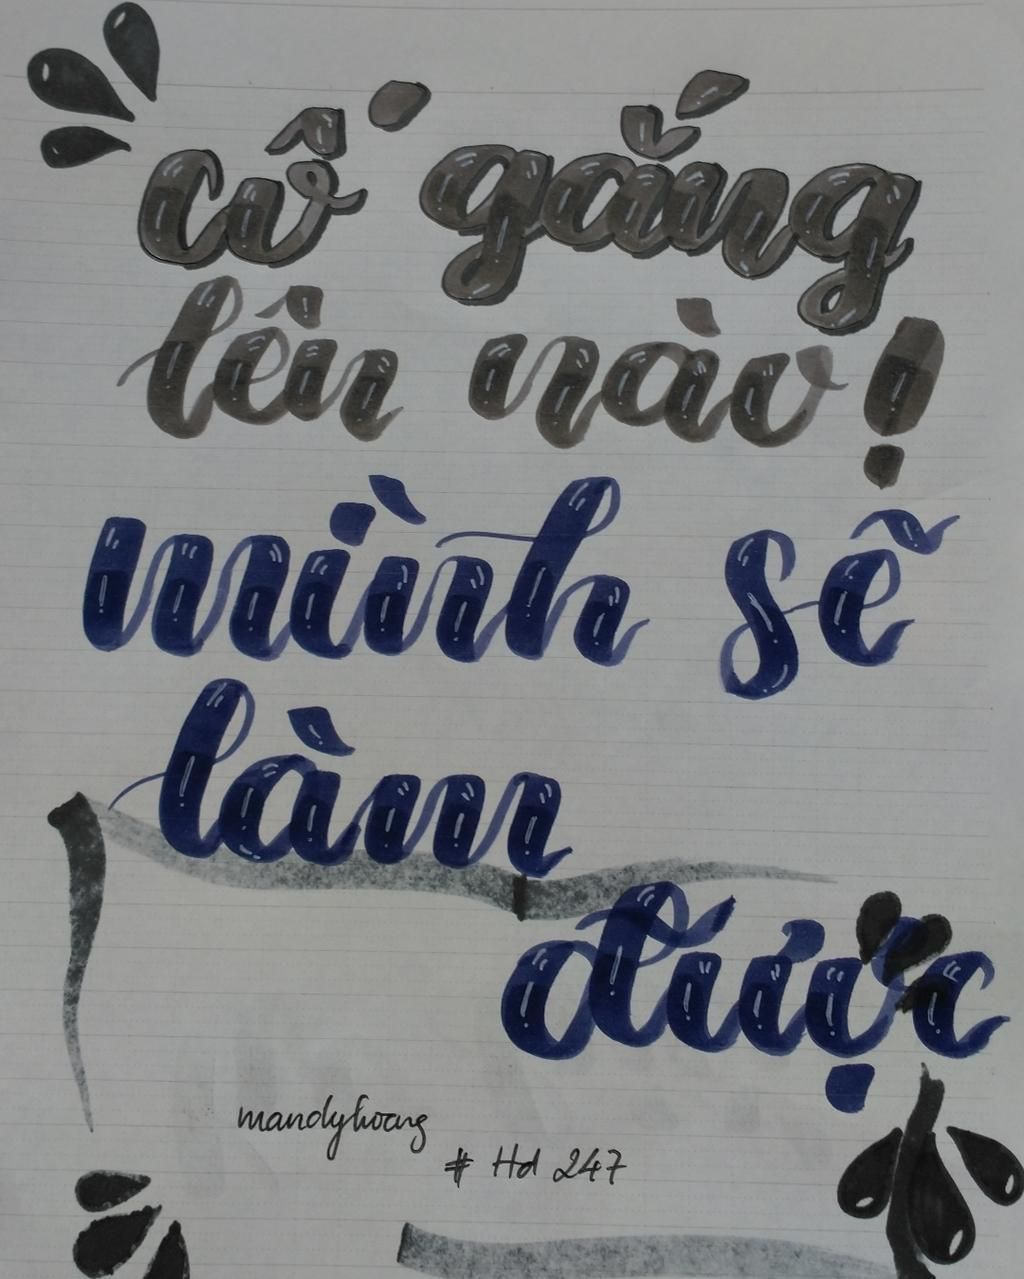 cố gắng
lên nào!
mình sẽ
làm
được
mandyhoang
# Hd 247